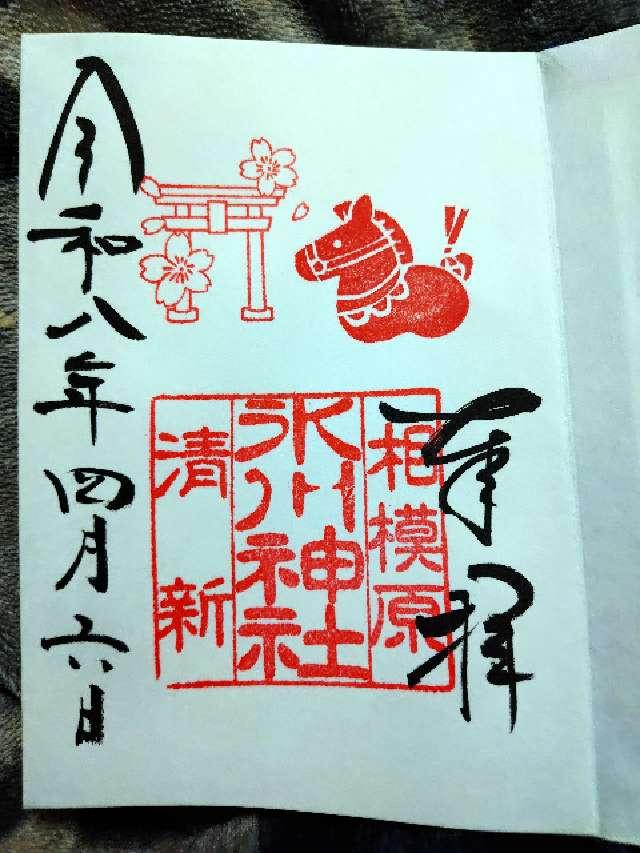 奉拝
相模原
氷川神社
清新
令和八年四月六日